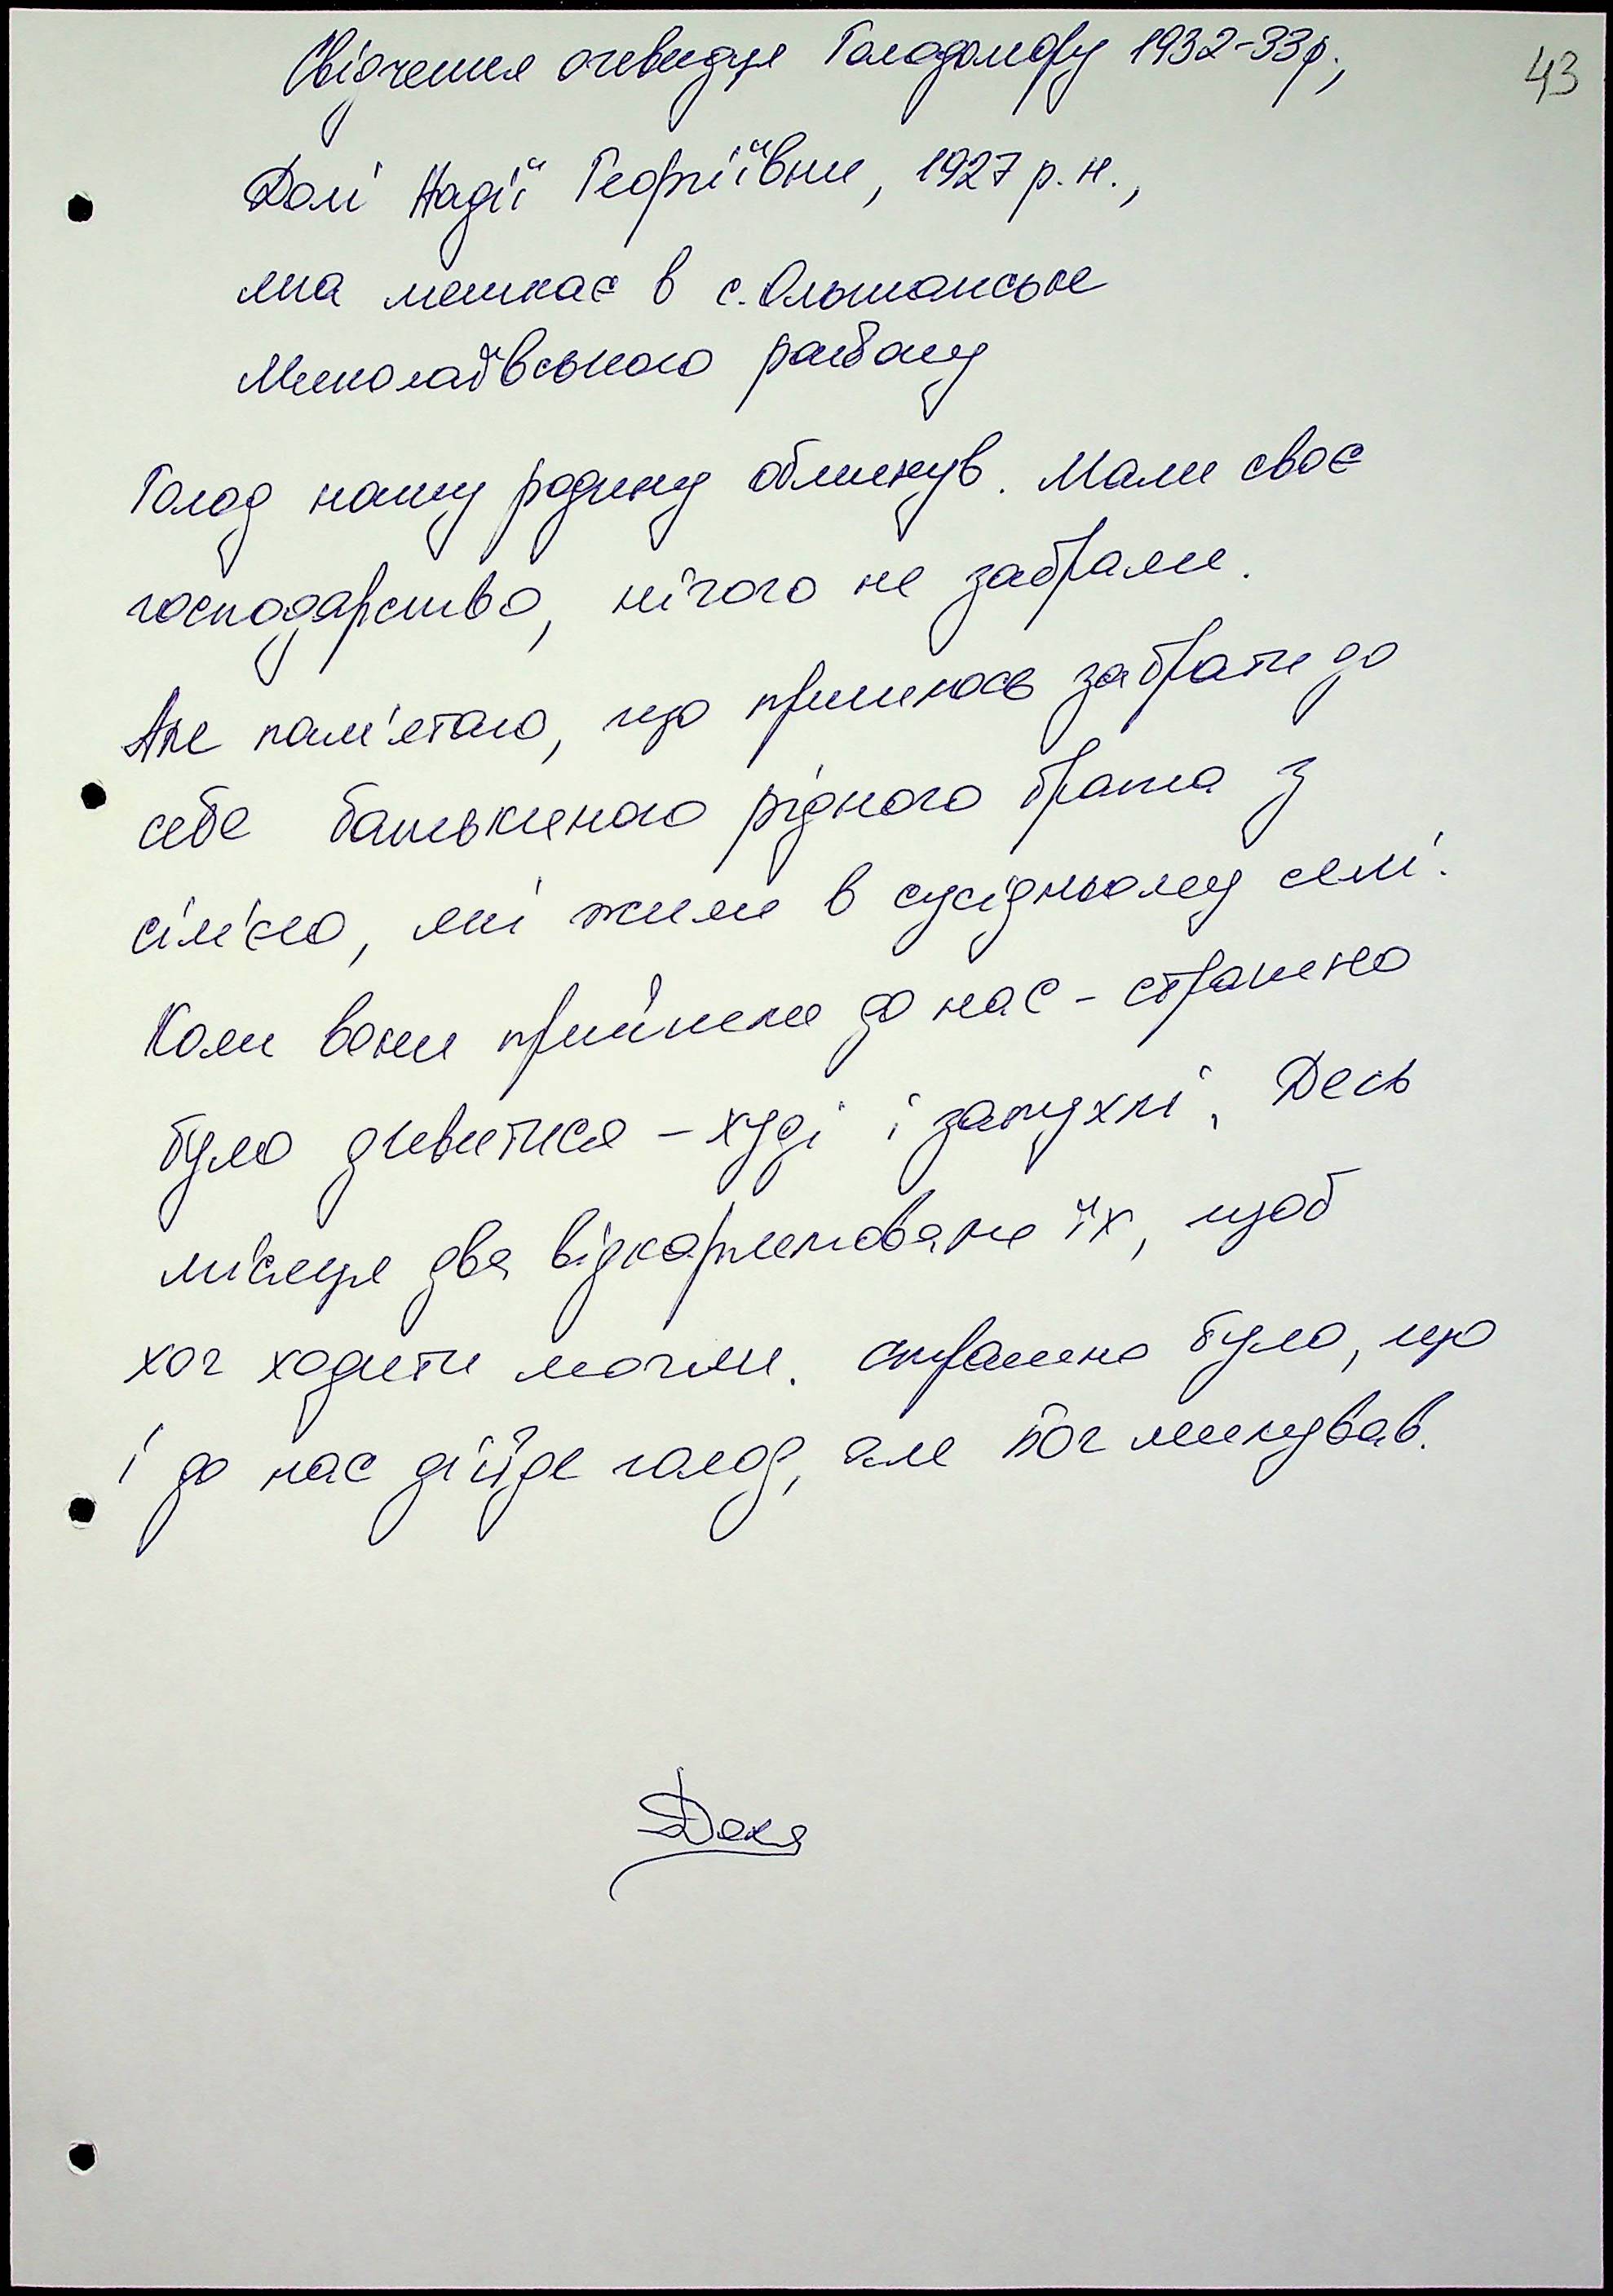 Свідчення очевидця Голодомору 1932-33р.,
43
Долі Надії Георгіївни, 1927 р.н.,
яка мешкає в с. Ольшанське
Миколаївського району
Голод нашу родину обминув. Мали своє
господарство, нічого не забрали.
Але пам'ятаю, що прийшлось забрати до
себе батькиного рідного брата з
сім'єю, які жили в сусідньому селі.
Коли вони прийшли до нас - страшно
було дивитися - худі і запухлі. Десь
місяця два відкормлювали їх, щоб
хоч ходити могли. Страшно було, що
і до нас дійде голод, але Бог минував.
Доля